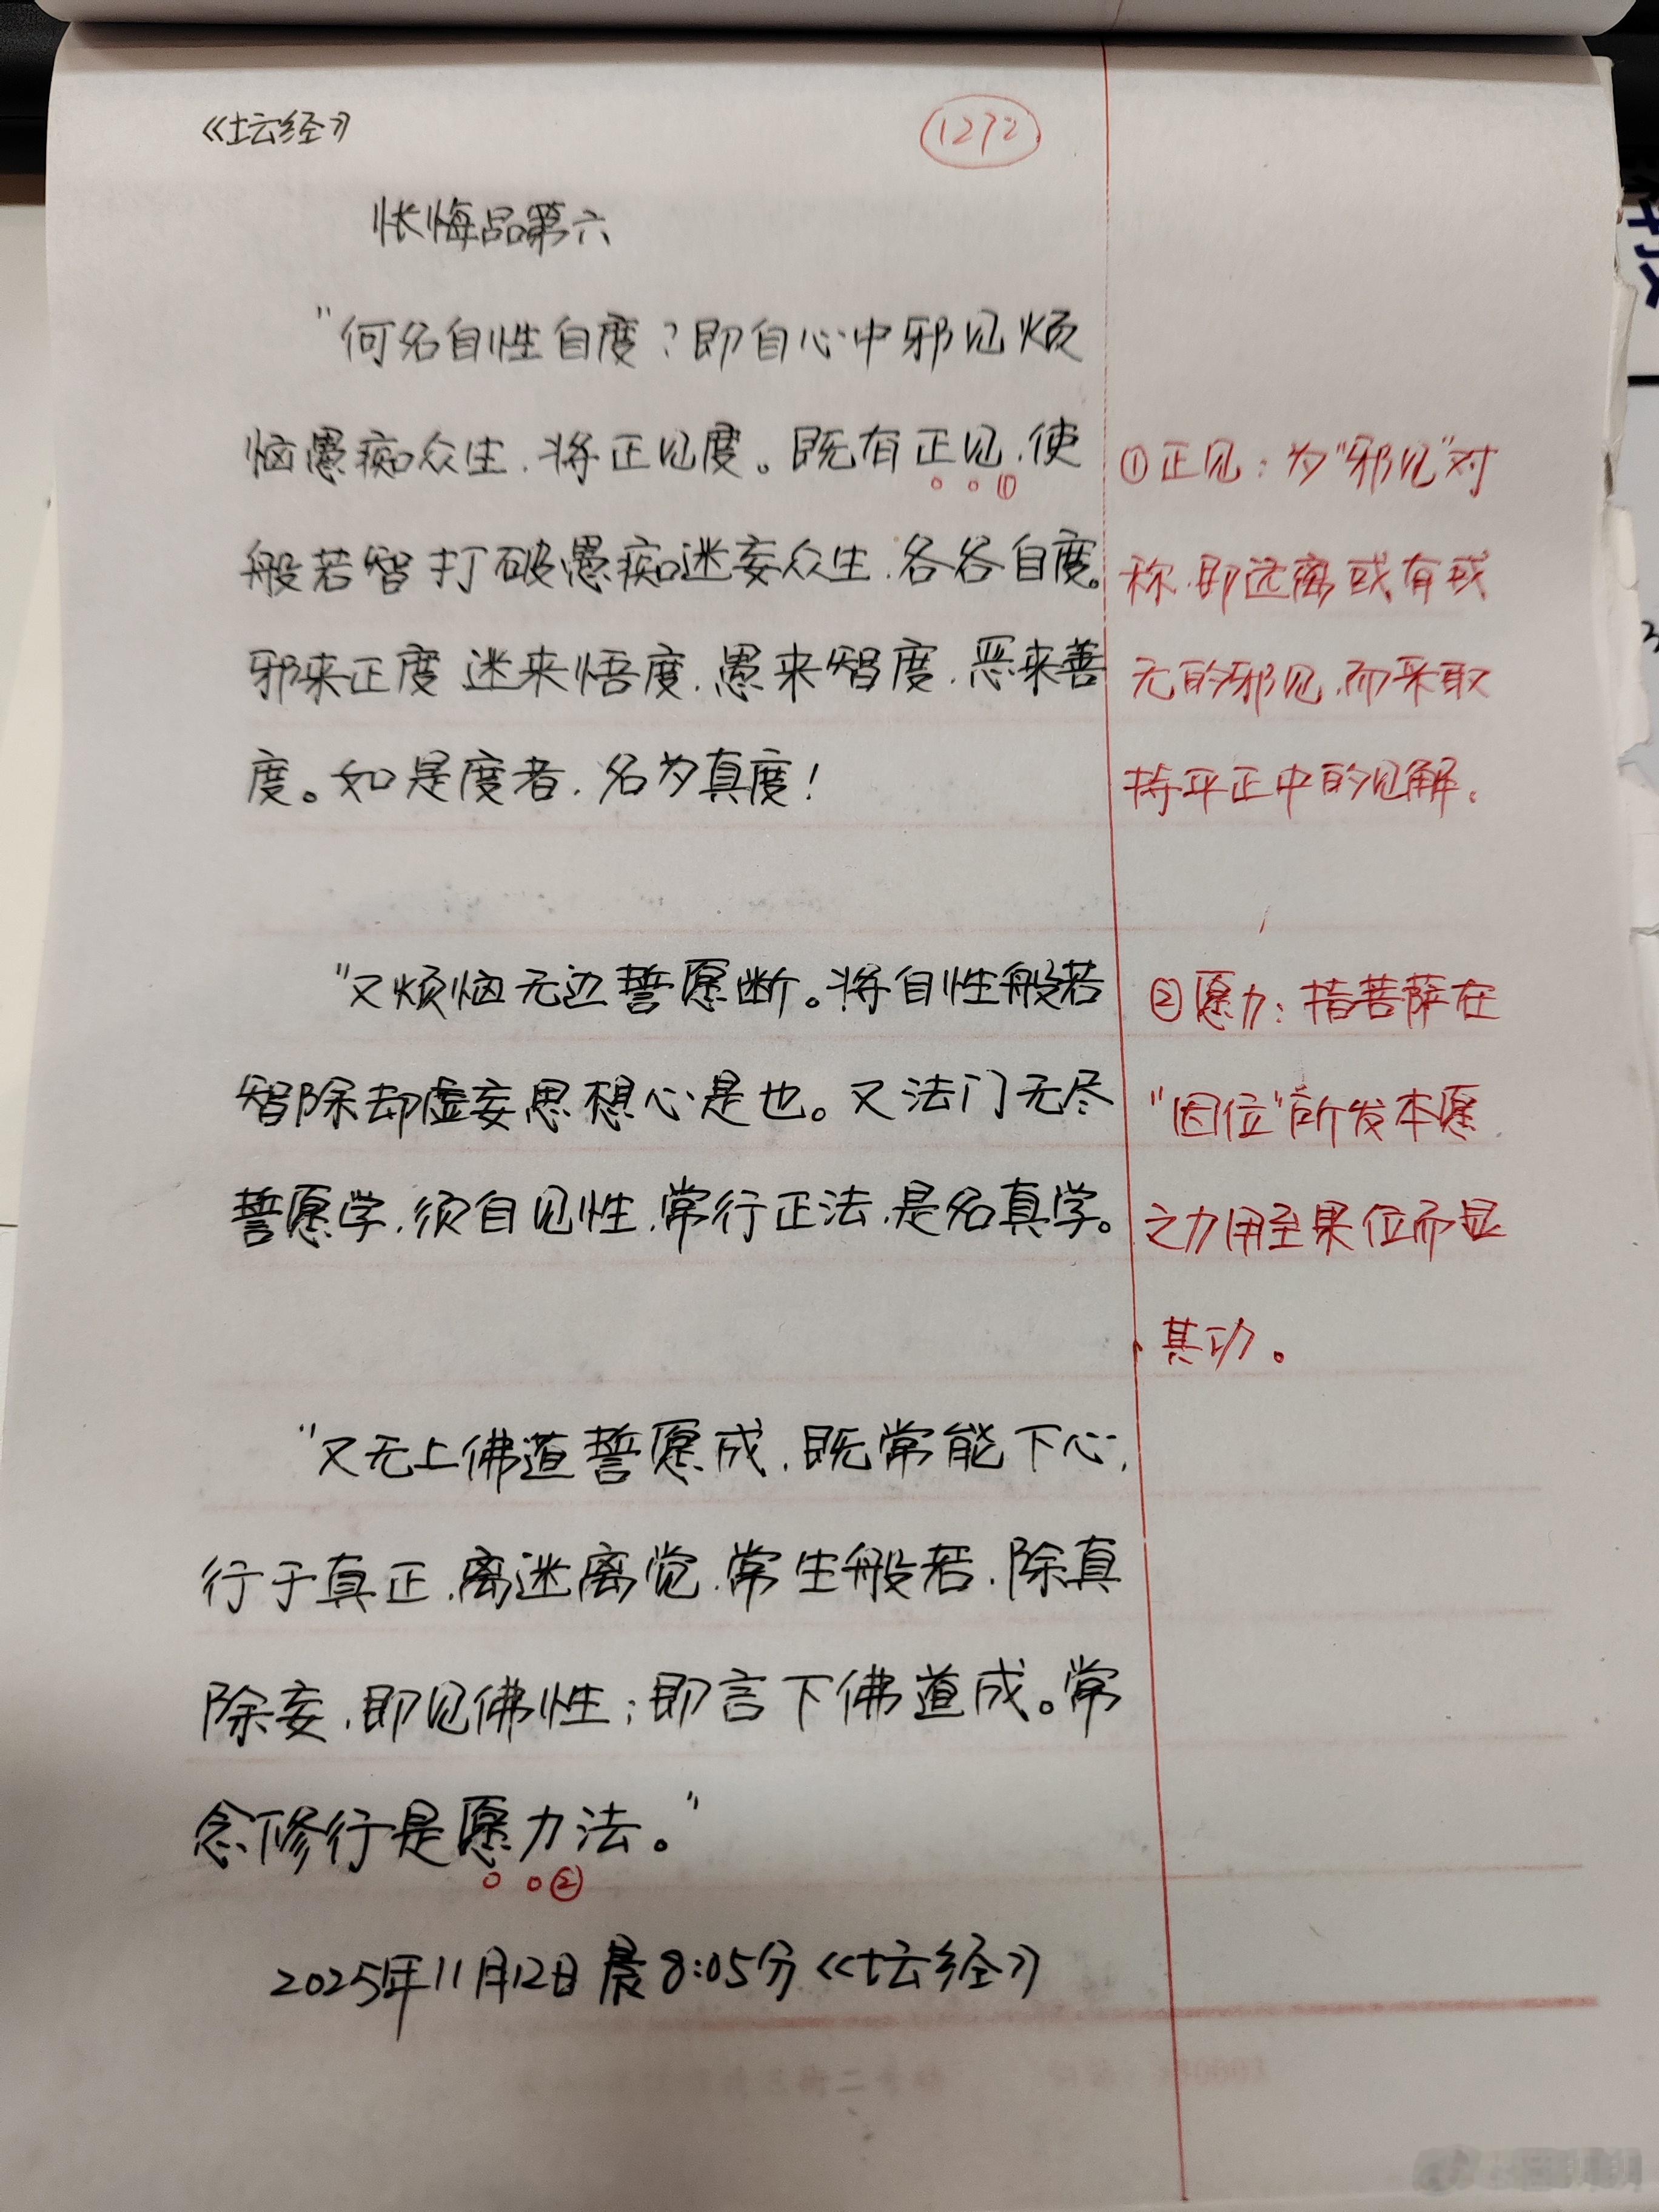 《坛经》
1272
怅悔品第六
"何名自性自度？即自心中邪见烦
恼愚痴众生，将正见度。既有正见，使
①
般若智打破愚痴迷妄众生，各各自度。
邪来正度 迷来悟度，愚来智度，恶来善
度。如是度者，名为真度！
①正见：为"邪见"对
称，即远离或有或
无的邪见，而采取
持平正中的见解。
"又烦恼无边誓愿断。将自性般若
智除却虚妄思想心是也。又法门无尽
誓愿学，须自见性，常行正法，是名真学。
②愿力：指菩萨在
"因位"所发本愿
之力用至果位而显
其功。
"又无上佛道誓愿成，既常能下心，
行于真正，离迷离觉，常生般若，除真
除妄，即见佛性；即言下佛道成。常
念修行是愿力法。"
②
2025年11月12日晨8:05分《坛经》